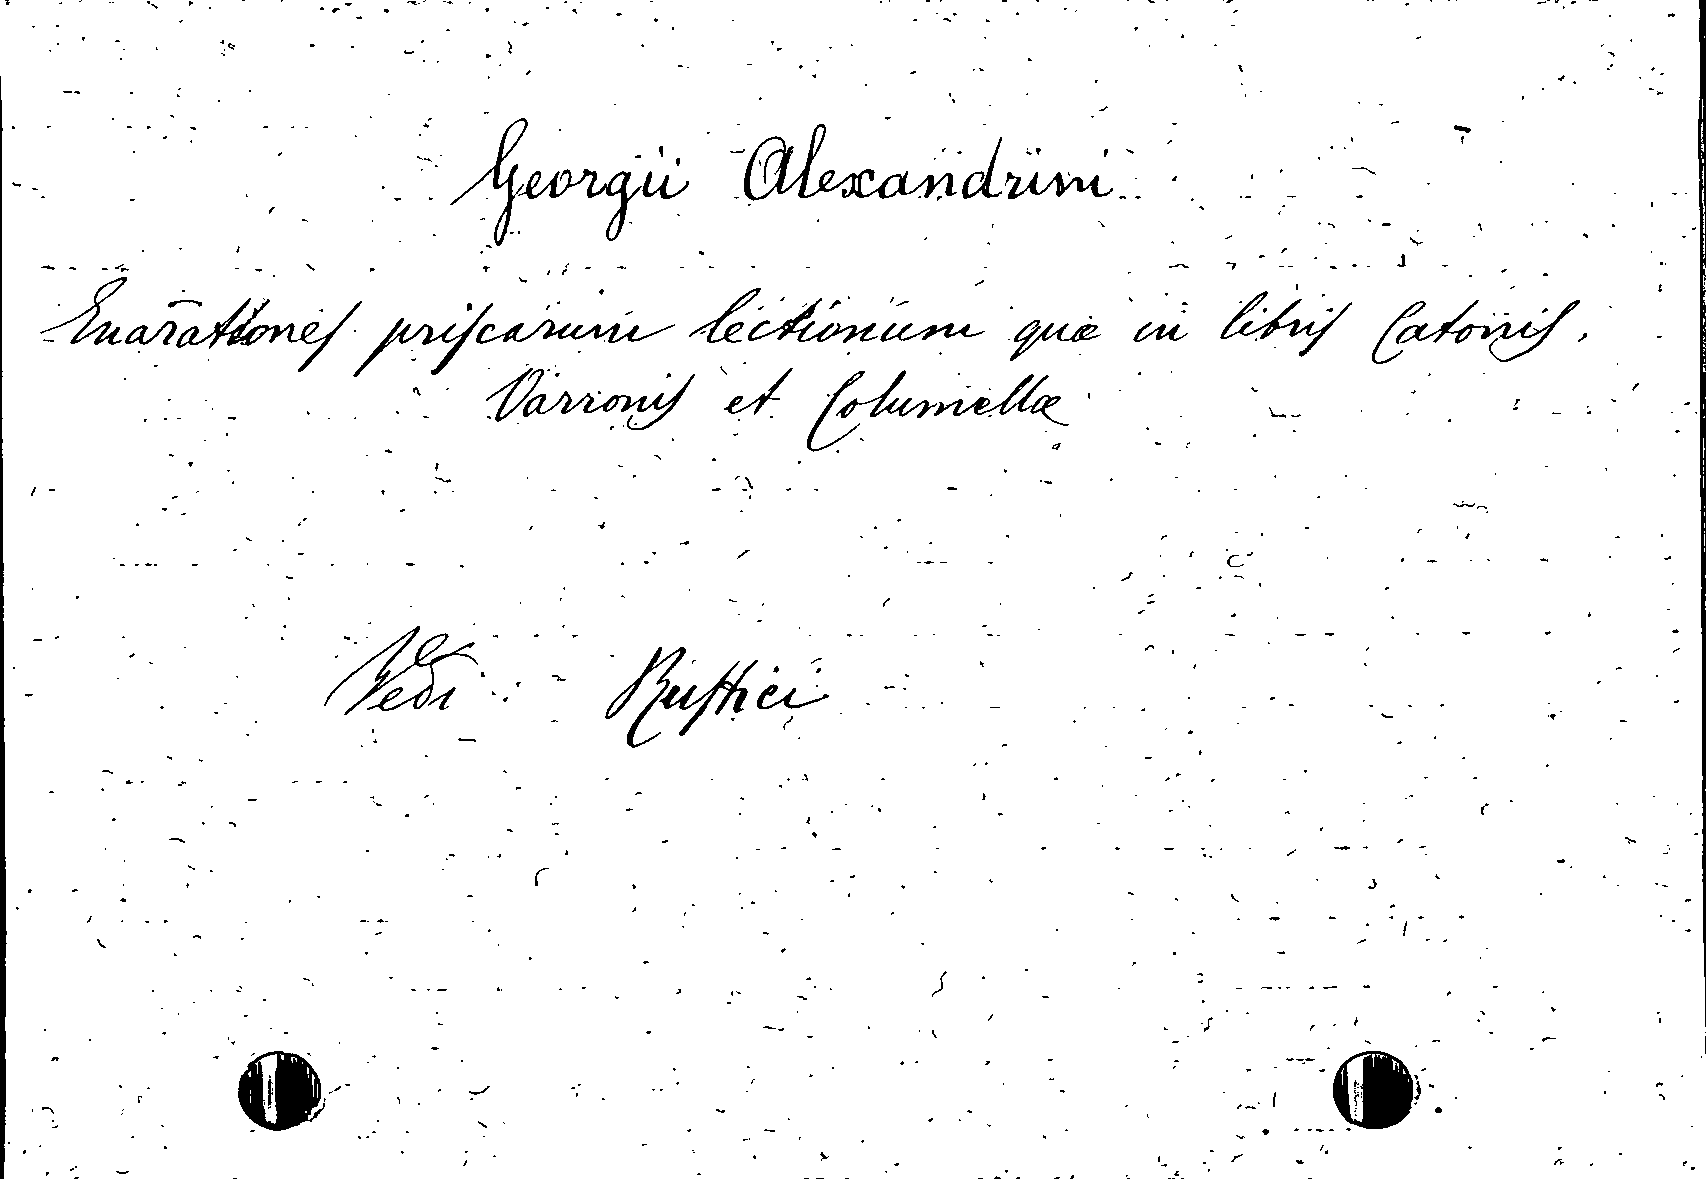 Georgii Alexandrini
Enarationes priscarum lectionum quæ in libris Catonis,
Varronis et Columellæ
Vedi Rustici